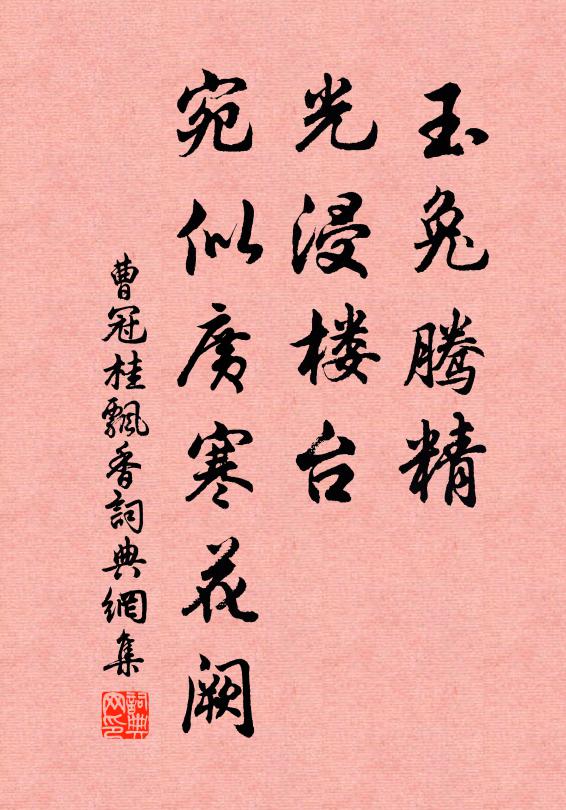 玉兔腾精
光浸楼台
宛似广寒花阙
曹冠桂飘香詞典網集
詞典網印